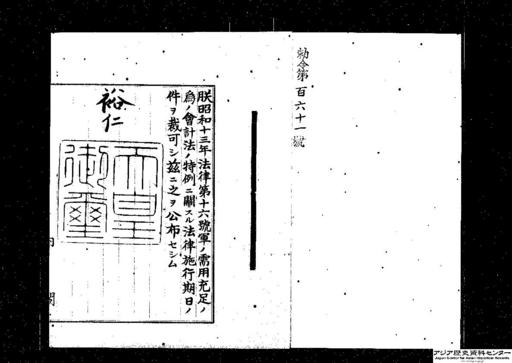 勅令第百六十一號
朕昭和十三年法律第十六號軍ノ需用充足ノ
爲ノ會計法ノ特例ニ關スル法律施行期日ノ
件ヲ裁可シ茲ニ之ヲ公布セシム
裕仁
天皇
御璽
内閣
アジア歴史資料センター
Japan Center for Asian Historical Records